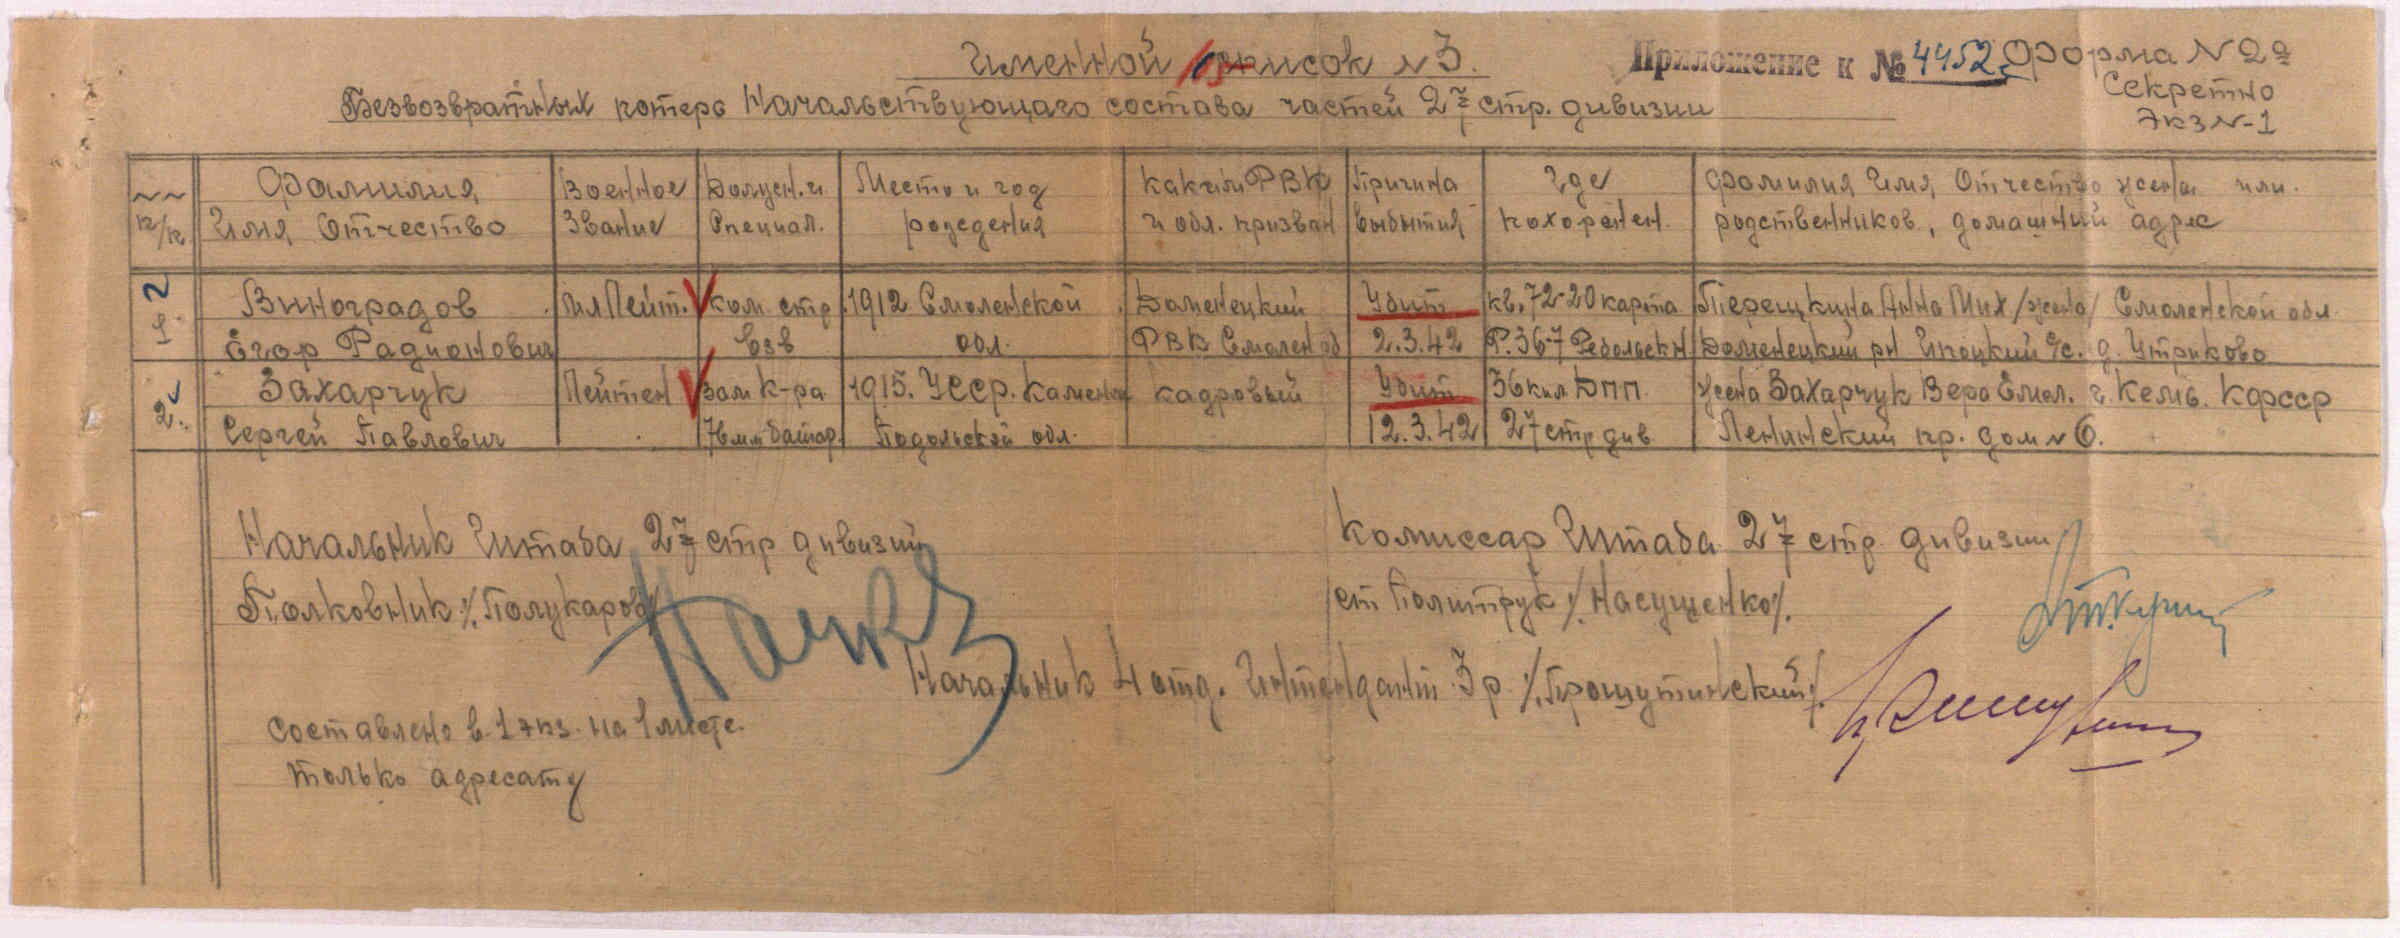 Именной список N 3.
Приложение к № 4452с Форма N 2а
Секретно
Экз N-1
Безвозвратных потерь Начальствующаго состава частей 27 стр. дивизии
NN Фамилия Военное Должн. и Место и год Каким РВК Причина Где Фамилия Имя, Отчество жены или
п/п. Имя, Отчество Звание Специал. рождения и обл. призван выбытия похоронен. родственников, домашний адрес
1 Виноградов мл Лейт. ком. стр. 1912 Смоленской Знаменецкий Убит кв. 72-20 карта Перещкина Анна Мих /жена/ Смоленской обл.
Егор Радионович взв обл. РВК Смолен об 2.3.42 Р.36-7 Ребольск Н Знаменецкий рн с/с. д. Утриково
2. Захарчук Лейтен зам к-ра 1915. УССР. Каменец кадровый Убит 36 кил ДПП. жена Захарчук Вера Емел. г. Кемь. КФССР
Сергей Павлович 76 мм батар. Подольской обл. 12.3.42 27 стр див Ленинский пр. дом N 6.
Начальник Штаба 27 стр дивизии Комиссар Штаба 27 стр. дивизии
Полковник /Полукаров/ ст Политрук /Насущенко/.
Начальник 4 отд. Интендант 3 р /Прошутинский/.
Составлено в 1 экз. на 1 листе.
только адресату